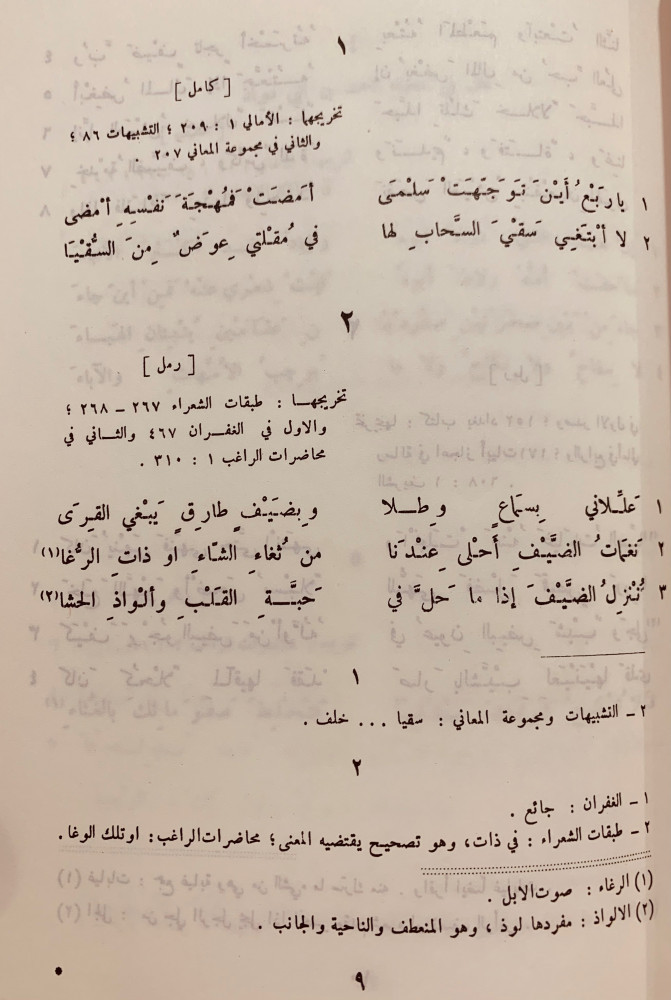 ١
[ كامل ]
تخريجها : الأمالي ١ : ٢٠٩ ؛ التشبيهات ٨٦ ؛
والثاني في مجموعة المعاني ٢٠٧ .
١ يا رَبْعُ أَيْنَ تَوَجَّهَتْ سَلْمَى أَمَضَتْ فَمُهْجَةُ نَفْسِهِ أَمْضى
٢ لا أَبْتَغِي سَقْيَ السَّحابِ لها في مُقْلَتي عِوَضٌ مِنَ السُّقْيَا
٢
[ رمل ]
تخريجهـا : طبقات الشعراء ٢٦٧ – ٢٦٨ ؛
والاول في الغفران ٤٦٧ والثـاني في
محاضرات الراغب ١ : ٣١٠ .
١ عَلِّلاني بِسَماعٍ وطِلا وبِضَيْفٍ طارِقٍ يَبْغي القِرَى
٢ نَغَماتُ الضَّيْفِ أَحْلى عِنْدَنا من ثُغاءِ الشّاءِ او ذاتِ الرُّغا(١)
٣ نُنْزِلُ الضَّيْفَ إذا ما حَلَّ في حَبَّةِ القَلْبِ وألْواذِ الحَشا(٢)
١
٢ – التشبيهات ومجموعة المعاني : سقيا ... خلف .
٢
١ – الغفران : جائع .
٢ – طبقات الشعراء : في ذات، وهو تصحيح يقتضيه المعنى؛ محاضرات الراغب: او تلك الوغا.
(١) الرغاء : صوت الابل .
(٢) الالواذ : مفردها لوذ ، وهو المنعطف والناحية والجانب .
٩